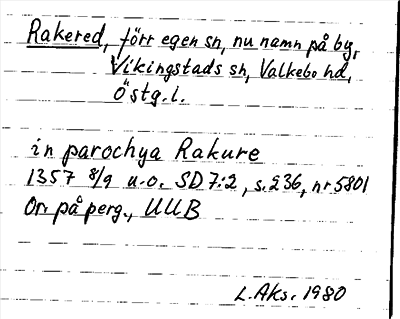 Rakered, förr egen sn, nu namn på by,
Vikingstads sn, Valkebo hd,
Östg.l.
in parochya Rakure
1357 8/9 u.o. SD 7:2, s.236, nr 5801
Or. på perg., UUB
L.Aks. 1980